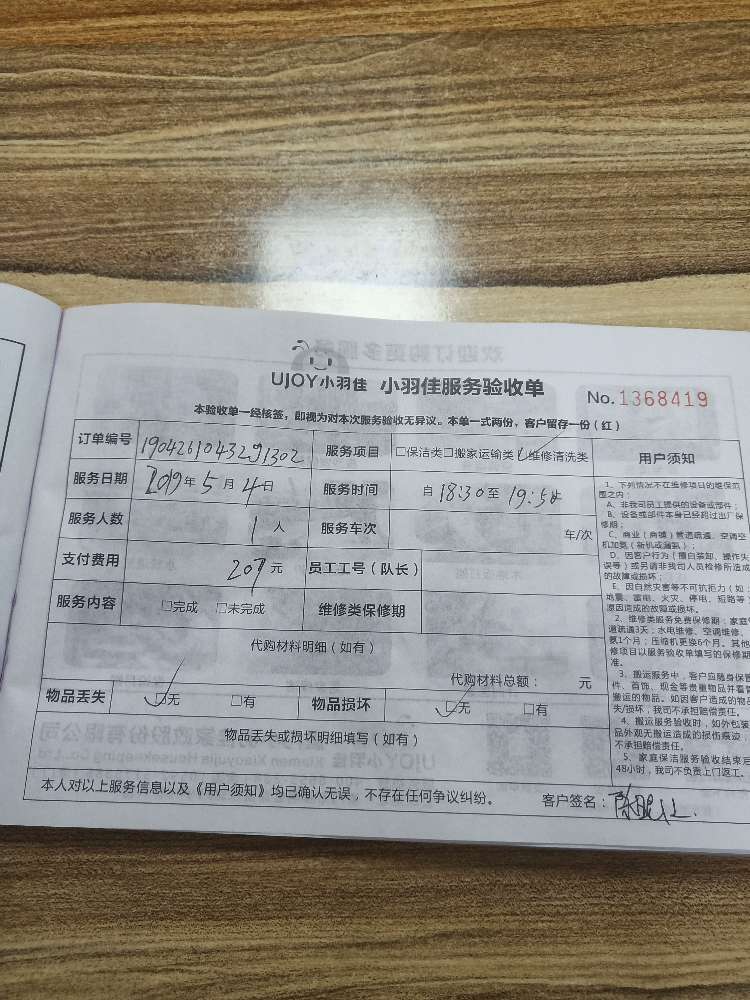 UJOY小羽佳 小羽佳服务验收单
No.1368419
本验收单一经核签，即视为对本次服务验收无异议。本单一式两份，客户留存一份（红）
订单编号 1904261043291302 服务项目 □保洁类□搬家运输类□维修清洗类
服务日期 2019年5月4日 服务时间 自18:30至19:54
服务人数 1人 服务车次 车/次
支付费用 207元 员工工号（队长）
服务内容 □完成 □未完成 维修类保修期
代购材料明细（如有）
代购材料总额： 元
物品丢失 □无 □有 物品损坏 □无 □有
物品丢失或损坏明细填写（如有）
本人对以上服务信息以及《用户须知》均已确认无误，不存在任何争议纠纷。 客户签名：
用户须知
1、下列情况不在维修项目的维保范
围之内：
A、非我司员工提供的设备或部件；
B、设备或部件本身已经超过出厂保
修期；
C、商业（商铺）管道疏通、空调空
机加氨（新机或漏氨）；
D、因客户行为（擅自装卸、操作失
误等）或另请非我司人员检修所造成
的故障或损坏；
E、因自然灾害等不可抗拒力（如：
地震、雷电、火灾、停电、短路等）
原因造成的故障或损坏。
2、维修类服务免费保修期：家庭
道疏通3天；水电维修、空调维修、
氨1个月；压缩机更换6个月。其他
修项目以服务验收单填写的保修期
准。
3、搬运服务中，客户应随身保管
件、首饰、现金等贵重物品并看管
搬运的物品。如因客户造成的物品
失/损坏，我司不承担赔偿责任。
4、搬运服务验收时，如外包装
品外观无搬运造成的损伤痕迹
不承担赔偿责任。
5、家庭保洁服务验收结束
48小时，我司不负责上门返工。